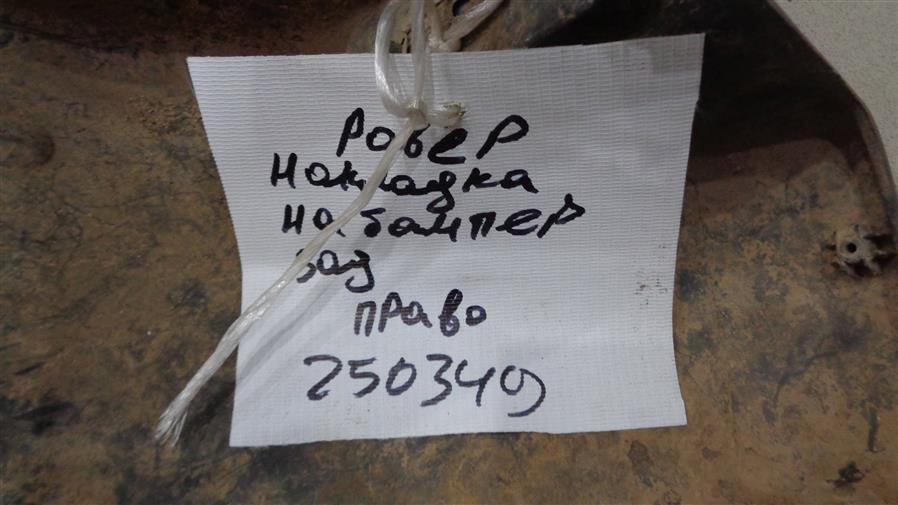 Ровер
Накладка
на бампер
зад
право
250349